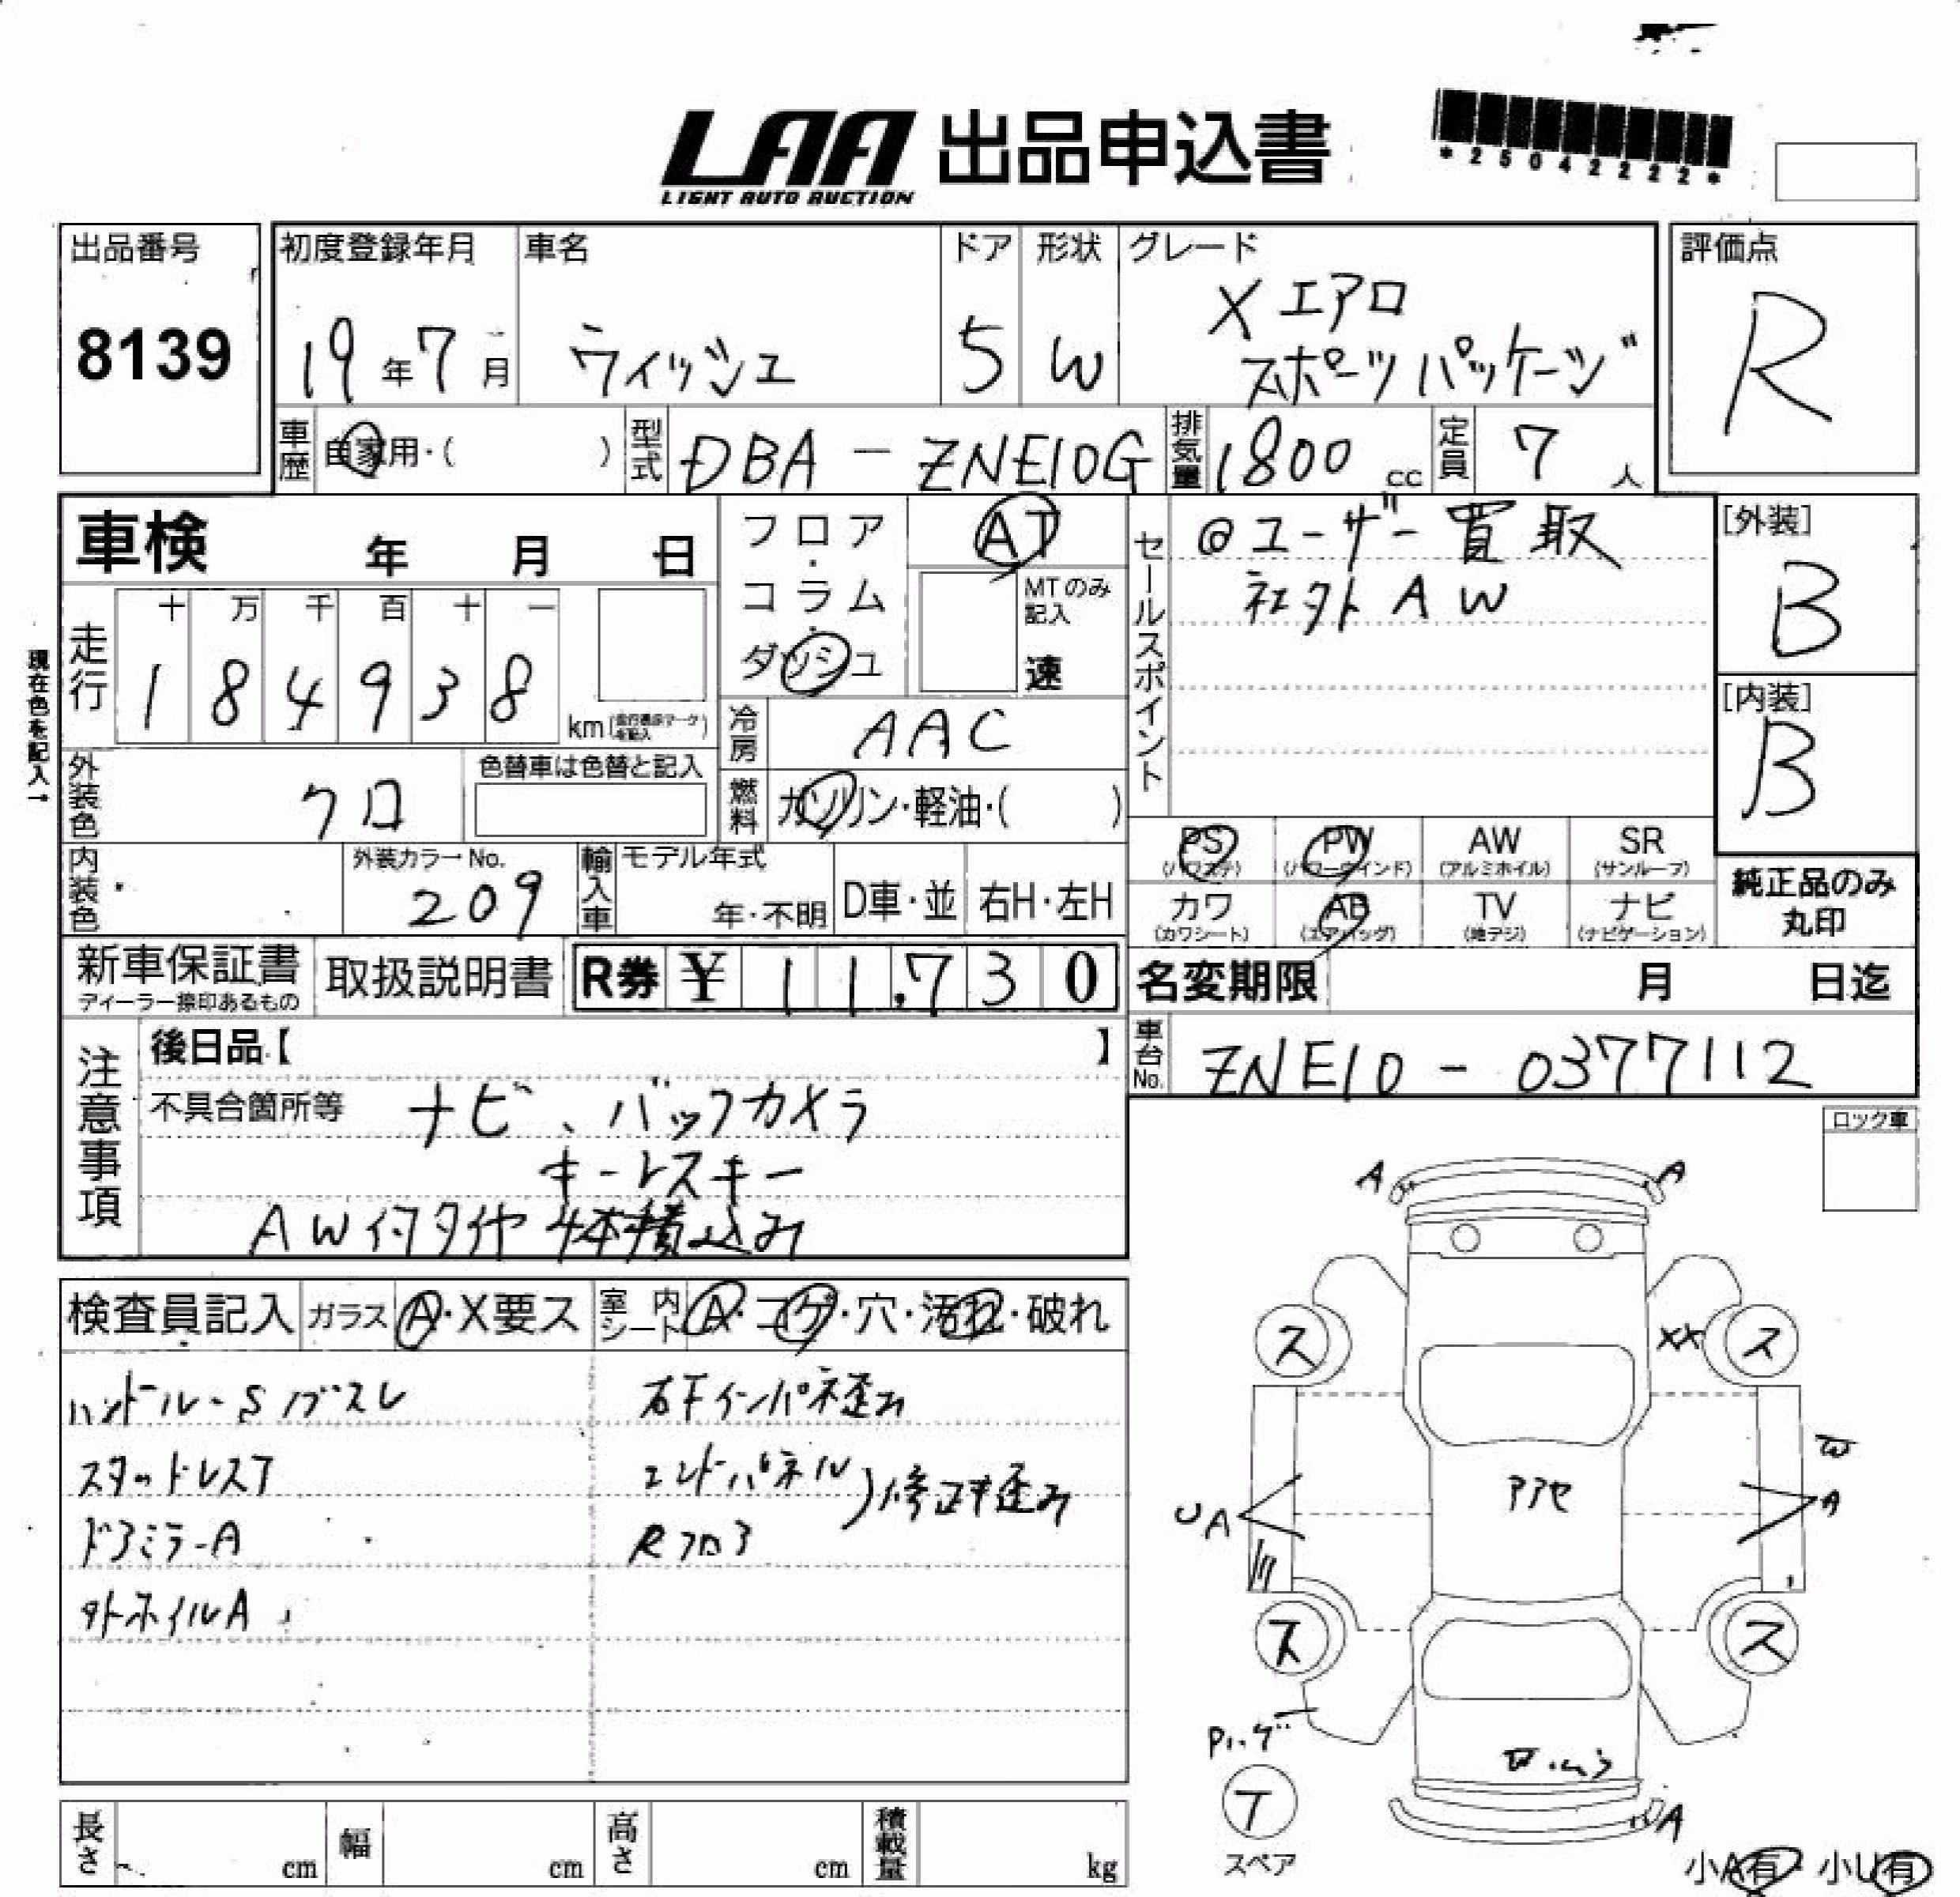 LAA 出品申込書
LIGHT AUTO AUCTION
*25042222*
出品番号
8139
初度登録年月
19年7月
車名
ウィッシュ
ドア
5
形状
W
グレード
Xエアロ
スポーツパッケージ
評価点
R
車歴
自家用・( )
型式
DBA-ZNE10G
排気量
1800 cc
定員
7 人
車検 年 月 日
現在色を記入→
走行
十 万 千 百 十 一
1 8 4 9 3 8
km
フロア・
コラム・
ダッシュ
AT
MTのみ
記入
速
冷房
AAC
燃料
ガソリン・軽油・( )
外装色
クロ
色替車は色替と記入
内装色
外装カラーNo.
209
輸入車
モデル年式
年・不明
D車・並
右H・左H
セールスポイント
@ユーザー買取
社外AW
[外装]
B
[内装]
B
PS
(パワステ)
PW
(パワーウインド)
AW
(アルミホイル)
SR
(サンルーフ)
カワ
(カワシート)
AB
(エアバッグ)
TV
(地デジ)
ナビ
(ナビゲーション)
純正品のみ
丸印
新車保証書
ディーラー捺印あるもの
取扱説明書
R券 ¥ 11,730
名変期限 月 日迄
車台No.
ZNE10-0377112
注意事項
後日品【 】
不具合箇所等 ナビ、バックカメラ
キーレスキー
AW付タイヤ4本積込み
ロック車
検査員記入
ガラス
A・X要ス
室内シート
A・コゲ・穴・汚れ・破れ
ハンドル・Sノブスレ
スタッドレスT
ドアミラーA
外ホイルA
右Fインパネ歪み
エンドパネル
Rフロア
)修正キ歪み
A
A
ス
XX
ス
W
UA
アアセ
A
ス
ス
T
スペア
UA
小A有・小U有
長さ
cm
幅
cm
高さ
cm
積載量
kg